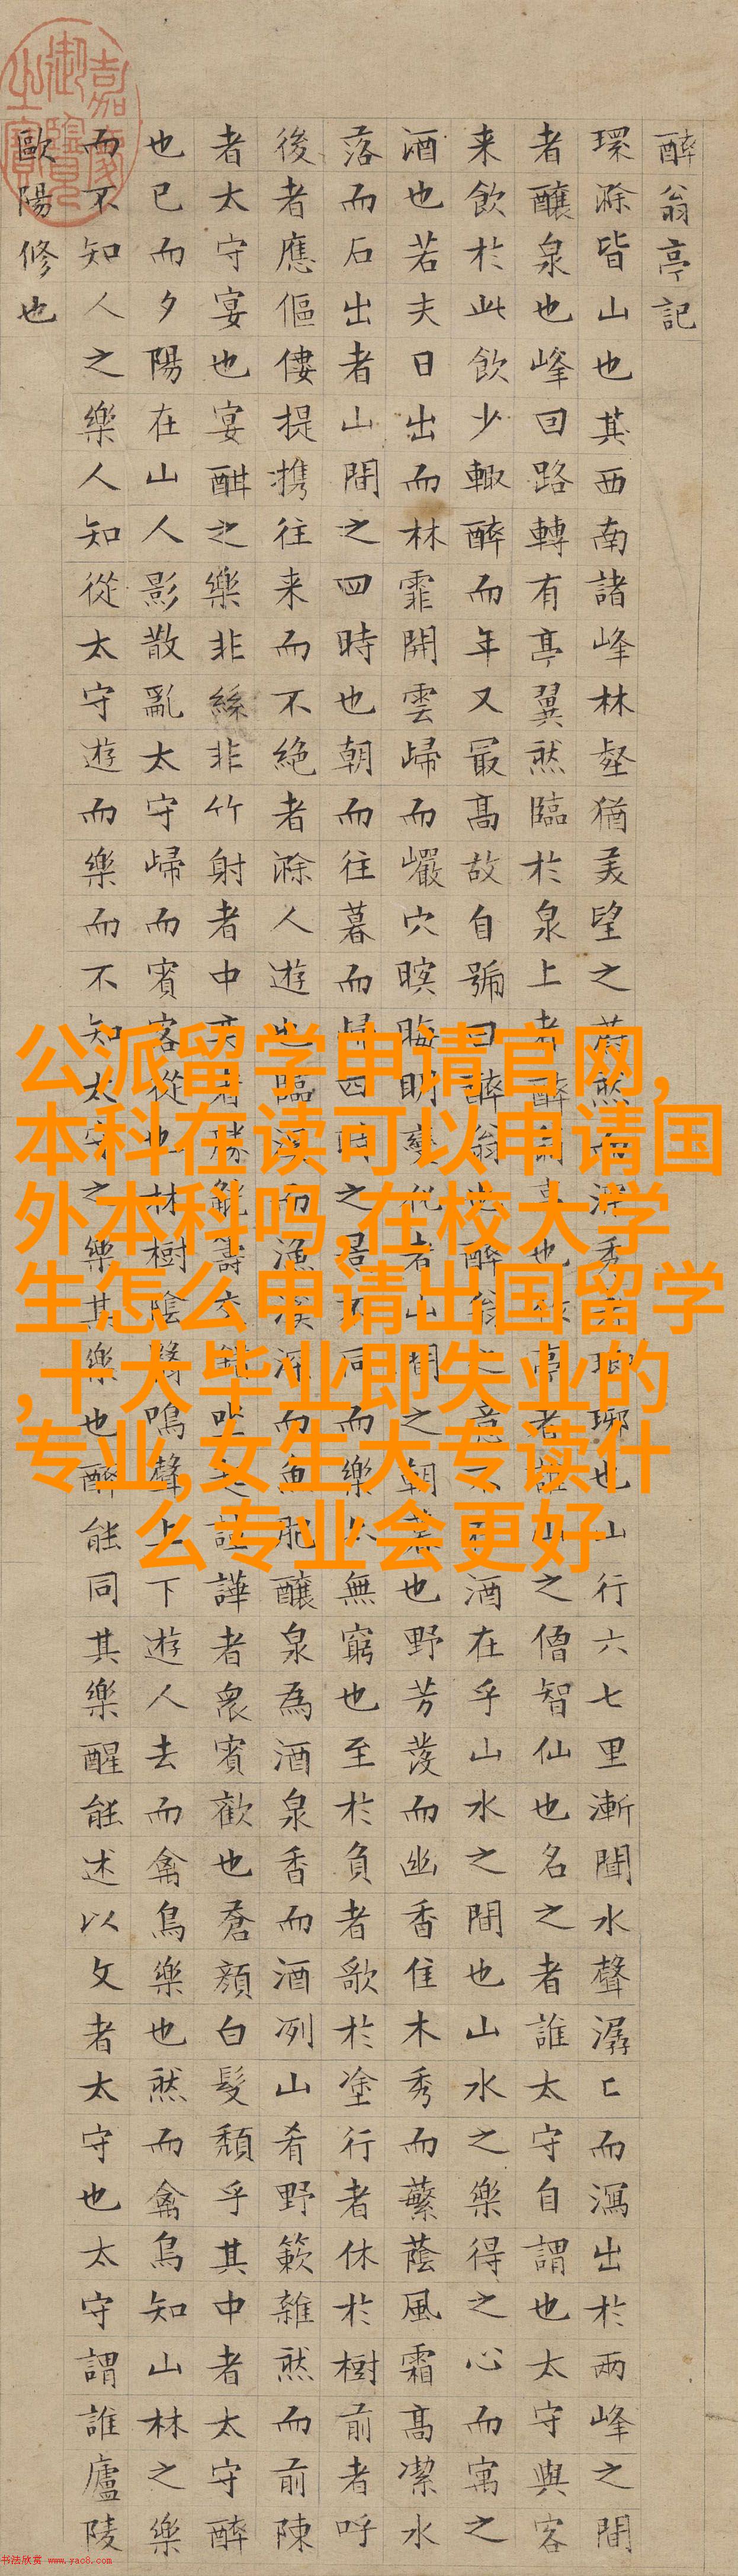 醉翁亭記
環滁皆山也其西南諸峰林壑猶美望之蔚然而深秀者瑯琊也山行六七里漸聞水聲潺々而瀉出於兩峰之間
者釀泉也峰回路轉有亭翼然臨於泉上者醉翁亭也作亭者誰山之僧智仙也名之者誰太守自謂也太守與客
来飲於此飲少輙醉而年又最高故自號曰醉翁也醉翁之意不在酒在乎山水之間也山水之樂得之心而寓之
酒也若夫日出而林霏開雲歸而巖穴暝晦明變化者山間之朝暮也野芳發而幽香佳木秀而蘩蔭風霜高潔水
落而石出者山間之四時也朝而往暮而歸四時之景不同而樂亦無窮也至於負者歌於塗行者休於樹前者呼
後者應傴僂提携往来而不絶者滁人遊也臨溪而漁溪深而魚肥釀泉為酒泉香而酒冽山肴野簌雜然而前陳
者太守宴也宴酣之樂非絲非竹射者中奕者勝觥籌交錯坐起諠譁者衆賓歡也蒼顔白髮頹乎其中者太守醉
也已而夕陽在山人影散亂太守歸而賓客從也林樹陰翳鳴聲上下遊人去而禽鳥樂也然而禽鳥知山林之樂
而不知人之樂人知從太守遊而樂而不知太守之樂其樂也醉能同其樂醒能述以文者太守也太守謂誰廬陵
歐陽修也
嘉慶御覽之寶
公派留学申请官网,
本科在读可以申请国
外本科吗,在校大学
生怎么申请出国留学
,十大毕业即失业的
专业,女生大专读什
么专业会更好
书法欣赏 www.yac8.com